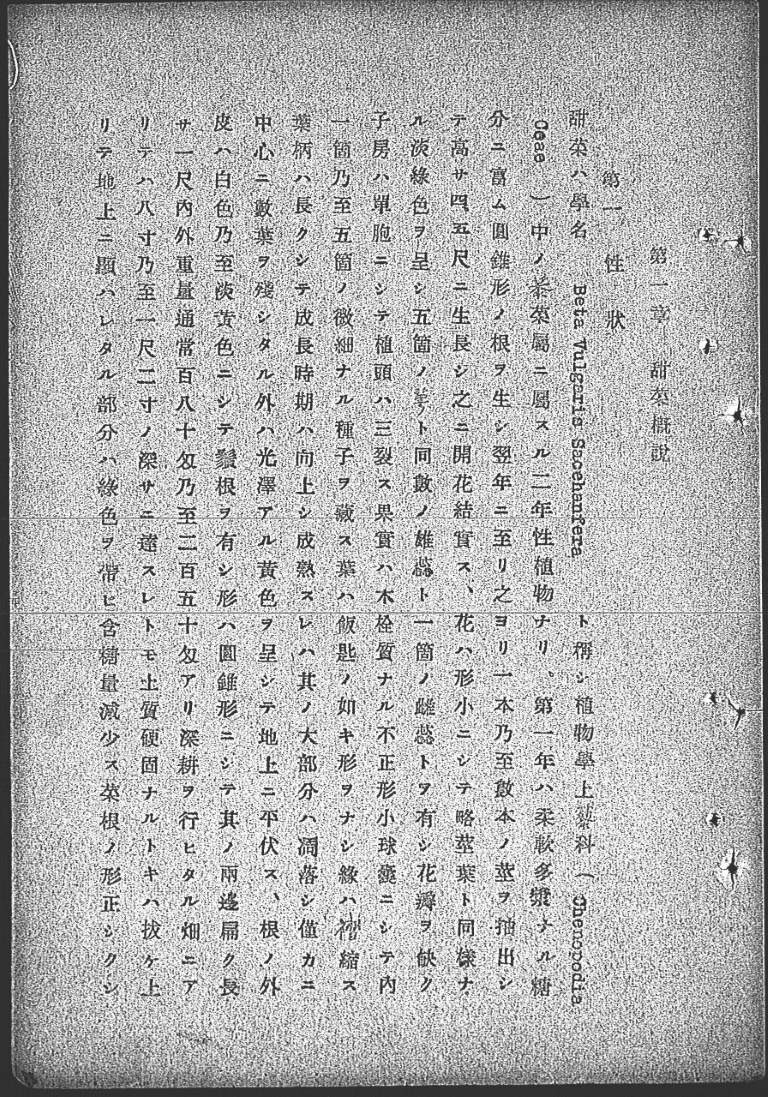 第一章　甜菜概說
第一　性　狀
甜菜ハ學名　Beta Vulgaris Saccharifera　ト稱シ植物學上藜科（Chenopodia
Ceae）中ノ菾菜屬ニ屬スル二年性植物ナリ。第一年ハ柔軟多漿ナル糖
分ニ富ム圓錐形ノ根ヲ生シ翌年ニ至リ之ヨリ一本乃至數本ノ莖ヲ抽出シ
テ高サ四、五尺ニ生長シ之ニ開花結實ス、花ハ形小ニシテ略莖葉ト同樣ナ
ル淡綠色ヲ呈シ五箇ノ萼ト同數ノ雄蕊ト一箇ノ雌蕊トヲ有シ花瓣ヲ缺ク
子房ハ單胞ニシテ植頭ハ三裂ス果實ハ木栓質ナル不正形小球纖ニシテ內
一箇乃至五箇ノ微細ナル種子ヲ藏ス葉ハ飯匙ノ如キ形ヲナシ緣ハ縮ス
葉柄ハ長クシテ成長時期ハ向上シ成熟スレハ其ノ大部分ハ凋落シ僅カニ
中心ニ數葉ヲ殘シタル外ハ光澤アル黃色ヲ呈シテ地上ニ平伏ス、根ノ外
皮ハ白色乃至淡黃色ニシテ鬚根ヲ有シ形ハ圓錐形ニシテ其ノ兩邊扁ク長
サ一尺內外重量通常百八十匁乃至二百五十匁アリ深耕ヲ行ヒタル畑ニア
リテハ八寸乃至一尺二寸ノ深サニ達スレトモ土質硬固ナルトキハ拔ケ上
リテ地上ニ顯ハレタル部分ハ綠色ヲ帶ヒ含糖量減少ス菜根ノ形正シクシ